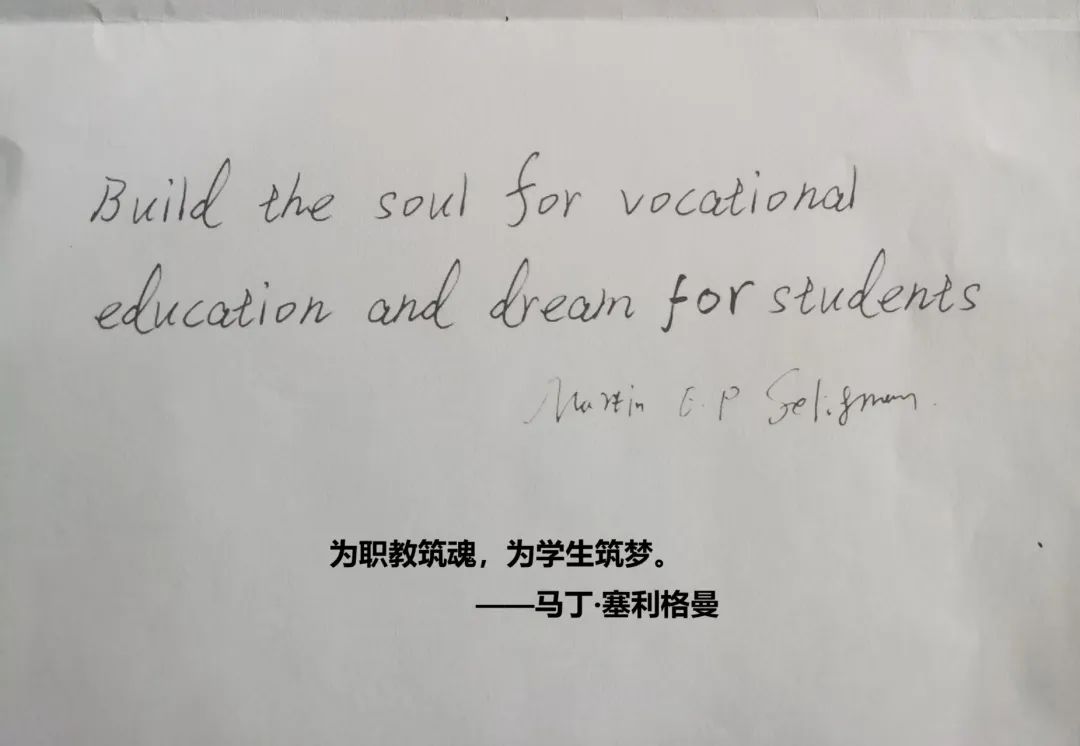 Build the soul for vocational
education and dream for students
Martin E.P Seligman.
为职教筑魂，为学生筑梦。
——马丁·塞利格曼